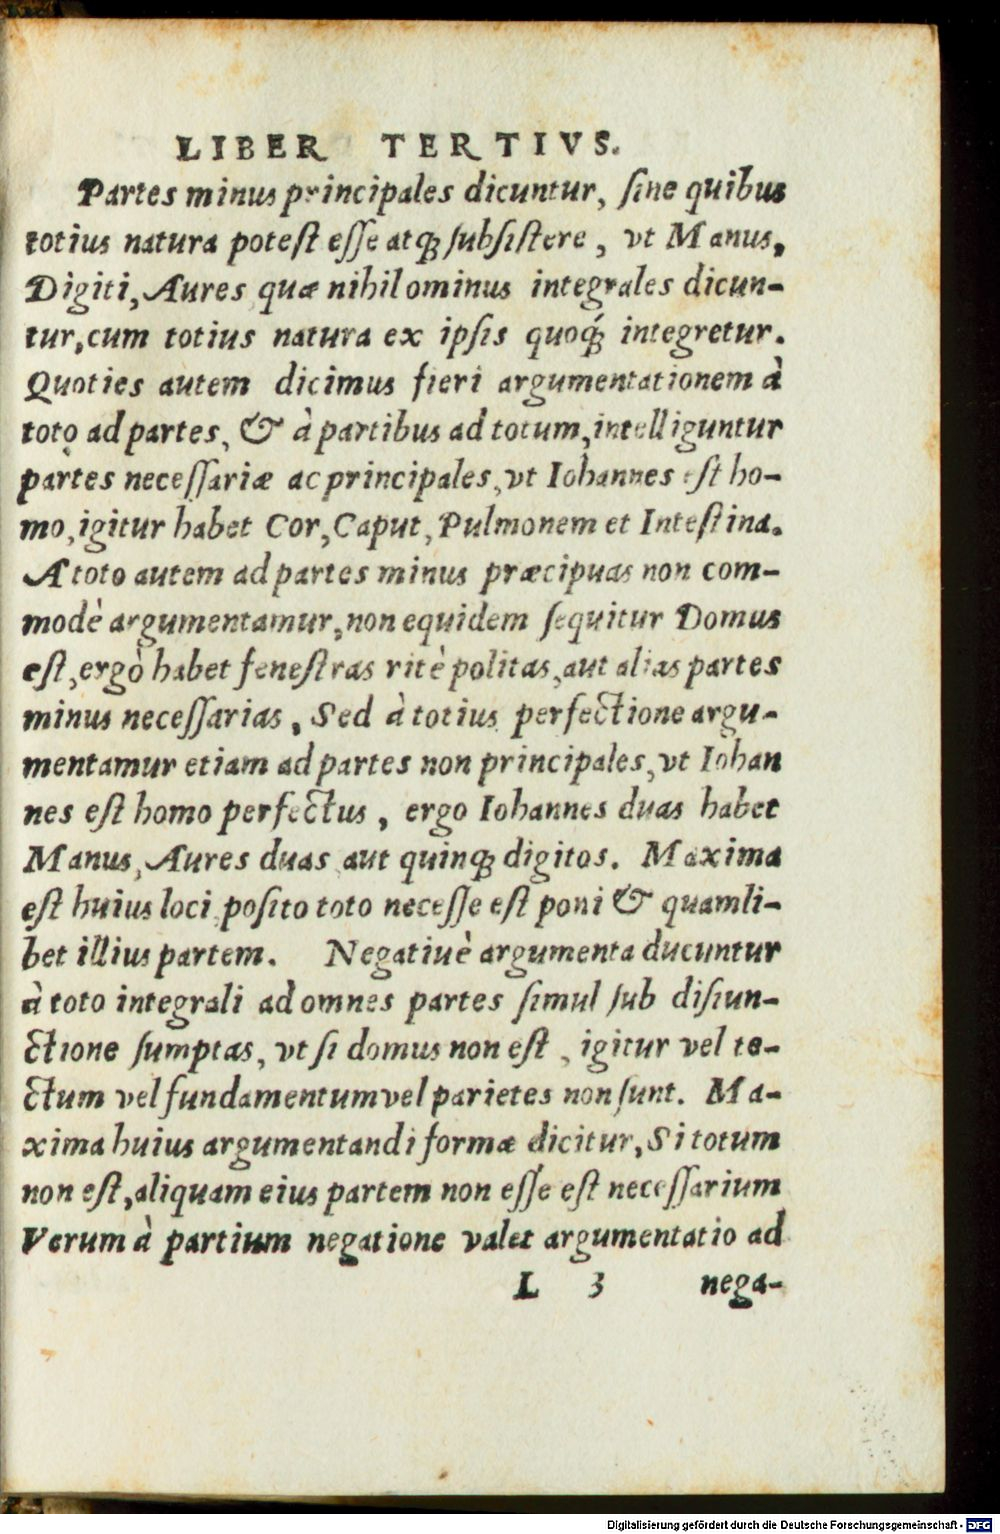 LIBER TERTIVS.
Partes minus principales dicuntur, ſine quibus
totius natura poteſt eſſe atq; ſubſiſtere, vt Manus,
Digiti, Aures quæ nihilominus integrales dicun-
tur, cum totius natura ex ipſis quoq́; integretur.
Quoties autem dicimus fieri argumentationem à
toto ad partes, & à partibus ad totum, intelliguntur
partes neceſſariæ ac principales, vt Iohannes eſt ho-
mo, igitur habet Cor, Caput, Pulmonem et Inteſtina.
A toto autem ad partes minus præcipuas non com-
modè argumentamur, non equidem ſequitur Domus
eſt, ergò habet feneſtras ritè politas, aut alias partes
minus neceſſarias, Sed à totius perfectione argu-
mentamur etiam ad partes non principales, vt Iohan
nes eſt homo perfectus, ergo Iohannes duas habet
Manus, Aures duas aut quinq; digitos. Maxima
eſt huius loci poſito toto neceſſe eſt poni & quamli-
bet illius partem. Negatiuè argumenta ducuntur
à toto integrali ad omnes partes ſimul ſub diſiun-
ctione ſumptas, vt ſi domus non eſt, igitur vel te-
ctum vel fundamentum vel parietes non ſunt. Ma-
xima huius argumentandi formæ dicitur, Si totum
non eſt, aliquam eius partem non eſſe eſt neceſſarium
Verum à partium negatione valet argumentatio ad
L 3 nega-
Digitalisierung gefördert durch die Deutsche Forschungsgemeinschaft - DFG